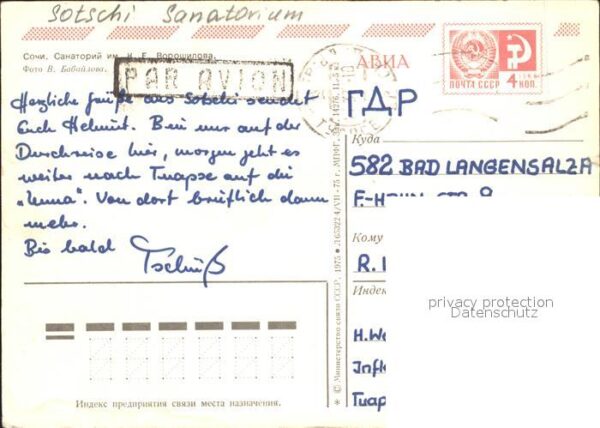 Sotschi Sanatorium
Сочи. Санаторий им. К. Е. Ворошилова.
Фото В. Бабайлова.
PAR AVION
АВИА
ПОЧТА СССР 4 КОП.
Herzliche Grüße aus Sotschi sendet
Euch Helmut. Bin nur auf der
Durchreise hier, morgen geht es
weiter nach Tuapse auf die
"Inna". Von dort brieflich dann
mehr.
Bis bald Tschüß
ГДР
Куда
582 BAD LANGENSALZA
Кому
R.
Индек
H. We
Tuap
privacy protection
Datenschutz
© Министерство связи СССР, 1975
Индекс предприятия связи места назначения.